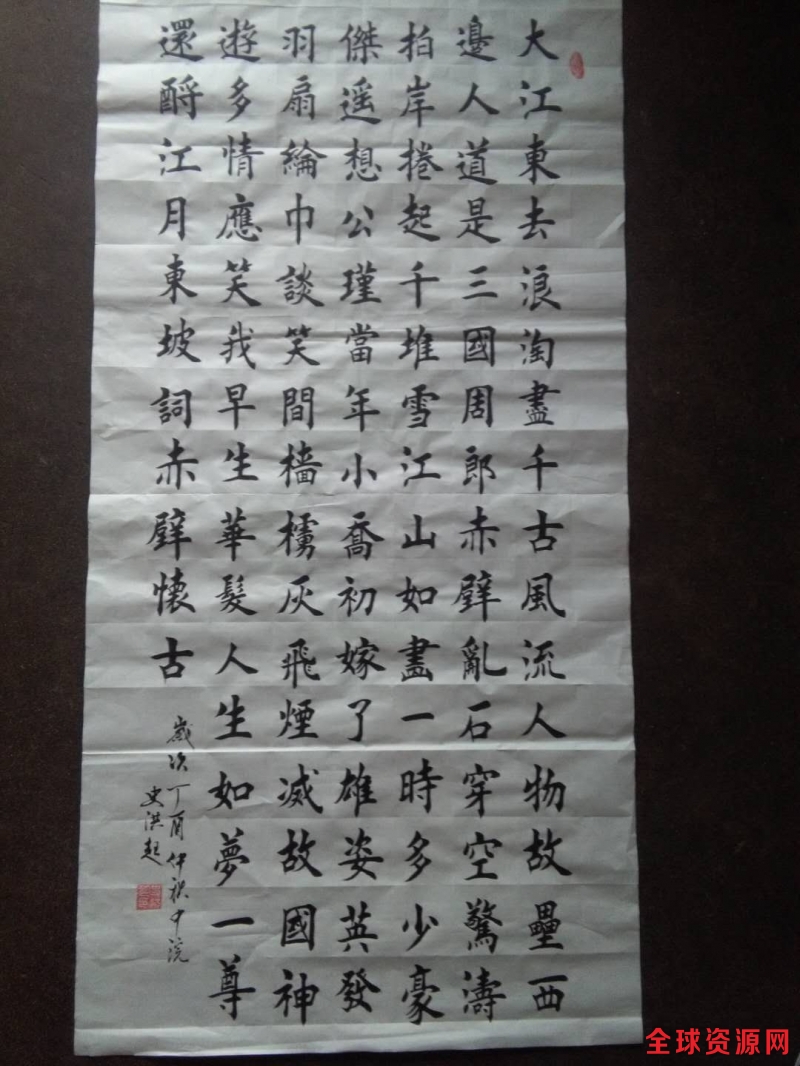 大江東去浪淘盡千古風流人物故壘西
邊人道是三國周郎赤壁亂石穿空驚濤
拍岸捲起千堆雪江山如畫一時多少豪
傑遥想公瑾當年小喬初嫁了雄姿英發
羽扇綸巾談笑間檣櫓灰飛煙滅故國神
遊多情應笑我早生華髮人生如夢一尊
還酹江月東坡詞赤壁懷古
歲次丁酉仲秋中浣
史洪起
全球资源网